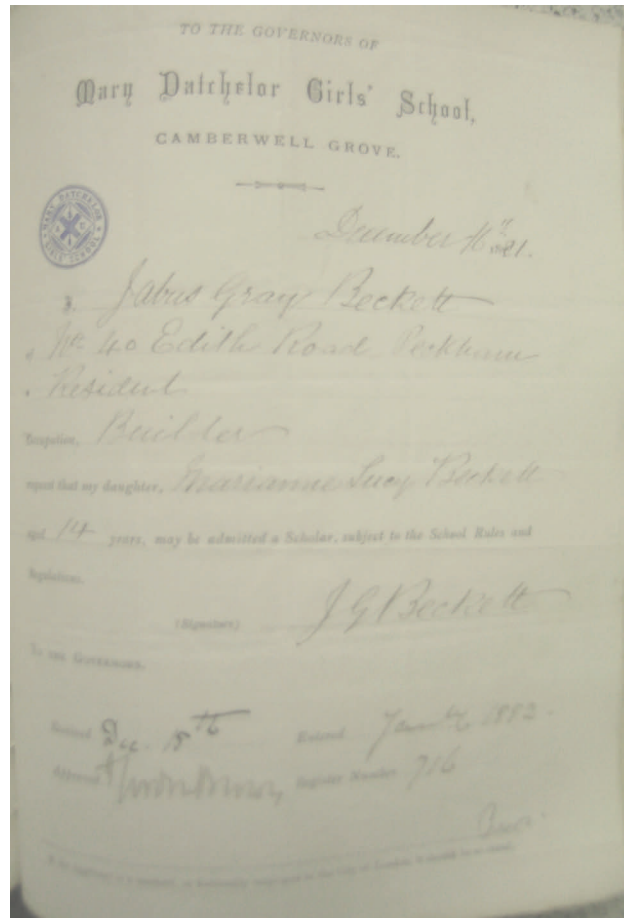 TO THE GOVERNORS OF
Mary Datchelor Girls' School,
CAMBERWELL GROVE.
MARY DATCHELOR GIRLS' SCHOOL
December 16th 1881.
I, Jabus Gray Beckett
of No. 40 Edith Road Peckham
Resident
Occupation, Builder
request that my daughter, Marianne Lucy Beckett
aged 14 years, may be admitted a Scholar, subject to the School Rules and
Regulations.
(Signature) J G Beckett
TO THE GOVERNORS.
Received Dec. 18th Entered 1882.
Approved Register Number 716